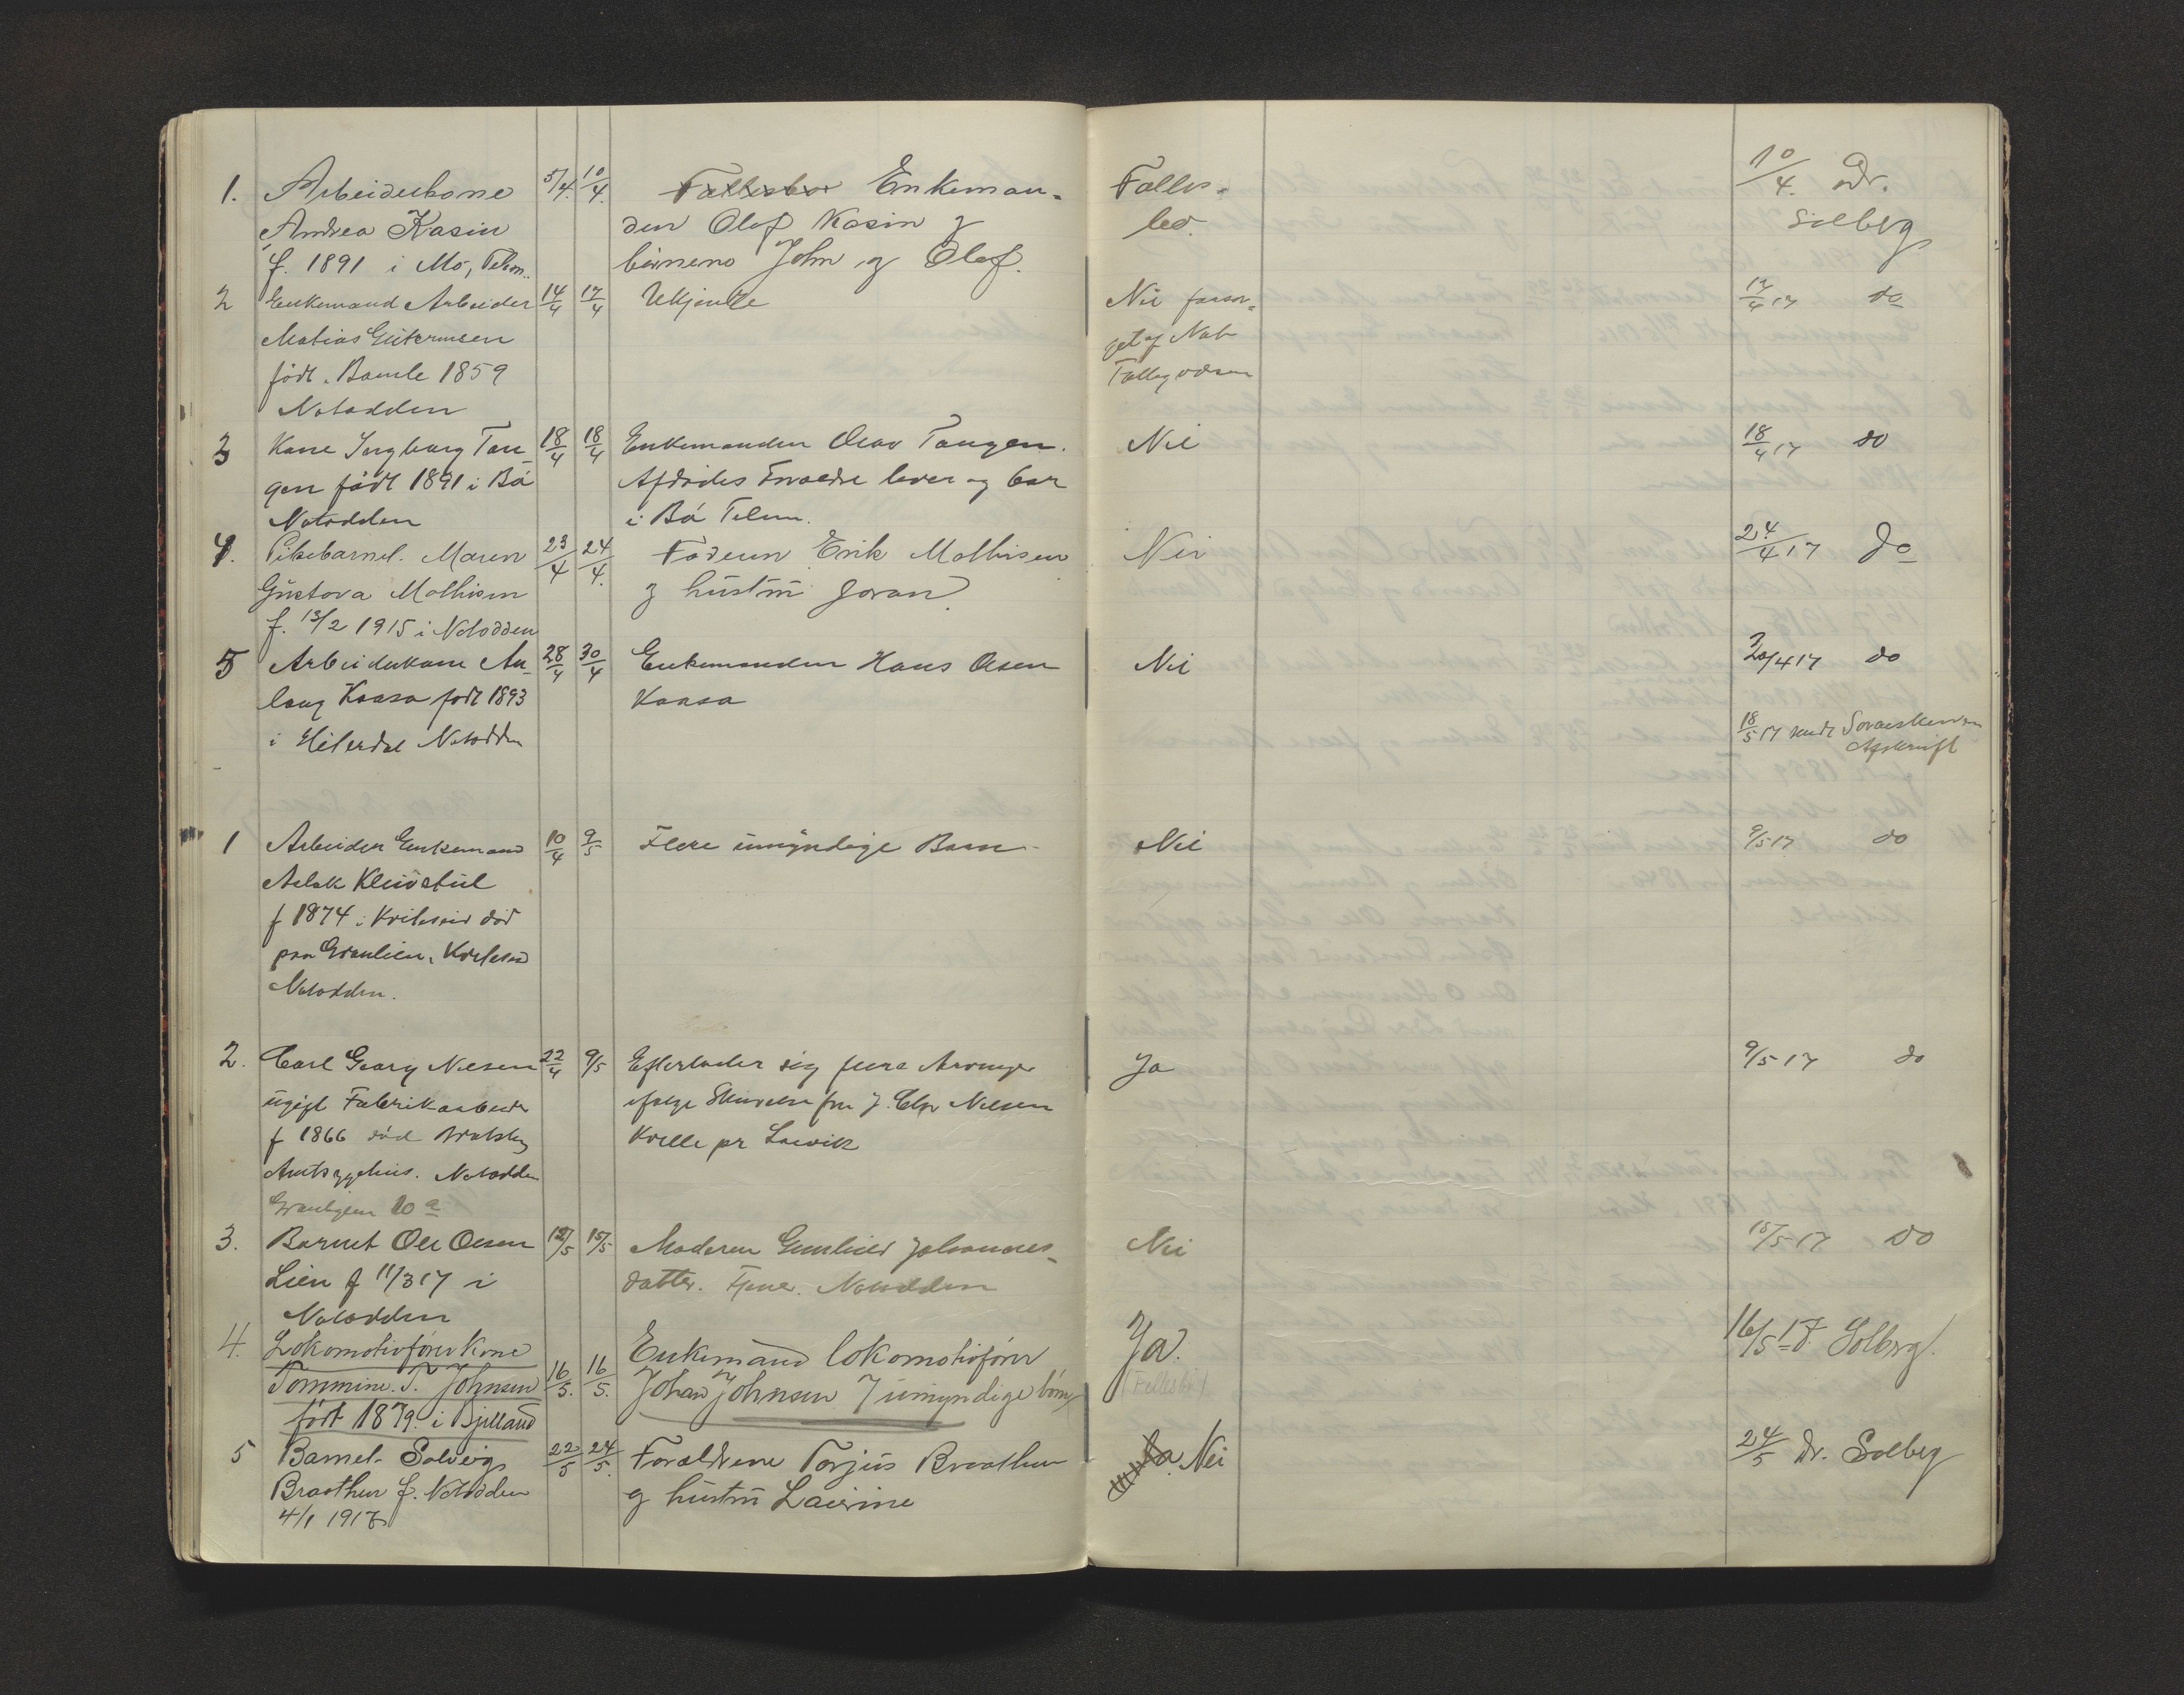 1. Arbeiderkone 5/4. 10/4. Fællesbo Enkeman- Fælles- 10/4. Dr.
Andrea Kasin den Olaf Kasin og bo. Solberg
f. 1891 i Mo, Telem. børnene John og Olaf.
2 Enkemand Arbeider 14/4 17/4 Ukjendte Nei forsør- 17/4 17 do
Matias Guttormsen get af Not.
født i Bamle 1859 Fattigvæsen
Notodden
3 Kone Ingborg Tan- 18/4 18/4 Enkemanden Olav Tangen. Nei 18/4 17 do
gen født 1891 i Bø Afdødes Forældre lever og bor
Notodden i Bø Telem.
4. Pikebarnet Maren 23/4 24/4. Faderen Erik Mathisen Nei 24/4 17 do
Gustava Mathisen og hustru Joran.
f. 13/2 1915 i Notodden
5 Arbeiderkone An- 28/4 30/4 Enkemanden Hans Olsen Nei 30/4 17 do
laug Kaasa født 1893 Kaasa
i Hiterdal Notodden 18/5 17 sendt Sorenskriveren
Afskrift
1 Arbeider Enkemand 10/4 9/5 Flere umyndige Barn Nei 9/5 17 do
Aslak Kleivstul
f 1874 i Kviteseid død
paa Granlien, Kviteseid
Notodden.
2. Carl Georg Nilsen 22/4 9/5 Efterlader sig flere Arvinger Ja 9/5-17 do
ugift Fabrikarbeider ifølge Skrivelse fra J. Chr Nilsen
f 1866 død Bratsberg Kvelle pr Larvik
Amtssygehus. Notodden
10 a
3. Barnet Ole Olsen 12/5 15/5 Moderen Gunhild Johannes- Nei 15/5-17 do
Lien f 11/3 17 i datter. Tjener. Notodden
Notodden
4. Lokomotivfører Kone 16/5. 16/5. Enkemand lokomotivfører Ja. 16/5-17 Solberg.
Tommine T. Johnsen Johan Johnsen 7 umyndige børn (Fællesbo)
født 1879 i Bjelland
5 Barnet Solveig 22/5 24/5. Forældrene Torjus Braathen Nei 24/5 Dr. Solberg
Braathen f. Notodden og hustru Laurine
4/1 1917